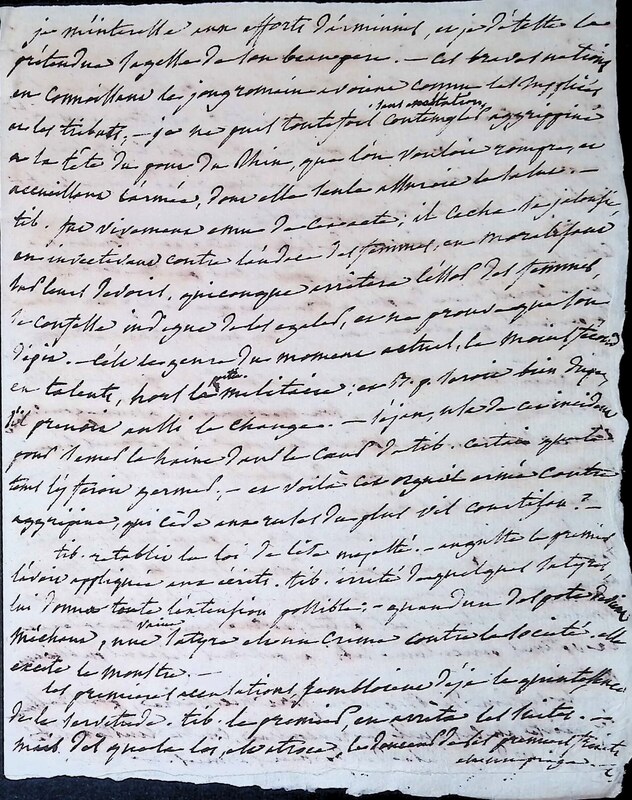 je m'interesse aux efforts d'arminius, et je déteste la
prétendue sagesse de son beaupere. — Ces braves nations
en connoissant le joug romain avoient connu les supplices
et les tributs, — je ne puis toutefois sans contempler aggrippine
a la tête du pont du Rhin, que l'on vouloit rompre, et
accueillant l'armée, dont elle seule assuroit le salut. —
tib. fut vivement emu de ce; il cacha sa jalousie,
en invectivant contre l'audace des femmes, en
leurs devoirs, quiconque arrêtera l'essor des femmes,
se confesse indigne de les egaler, et ne prouve que son
dépit. — C'est le genre du moment actuel, le moins fécond
en talents, hors le militaire; et B. p. seroit bien
s'il prenoit aussi le change. — séjan, usa de ces incidens
pour semer la haine dans le cœur de tib. certain que le
tems l'y feroit germer, — et voilà cet orgueil armé contre
aggripine, qui cède aux ruses du plus vil courtisan? —
tib. retablit la loi de lèse majesté. — auguste le premier
l'avoit appliquée aux écrits. tib. irrité de quelques satyres
lui donna toute l'extension possible; — quand un despote est
méchant, une vaine satyre est un crime contre la société. elle
excite le monstre. —
les premieres accusations, sembloient déjà la quintessence
de la servitude. tib. le premier, en arrêta les suites. —
mais dès que la loi, est atroce, la douceur de ses premiers traits
est un piege. —